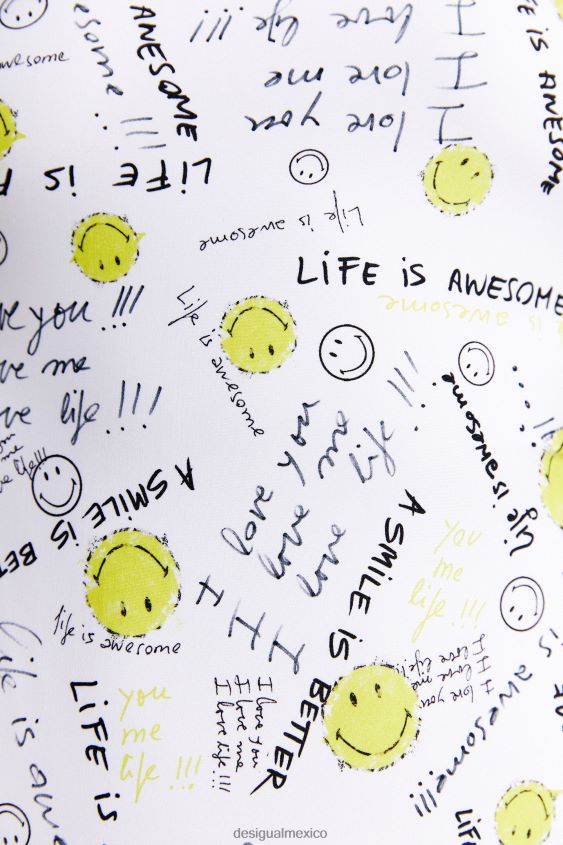 I love life !!!
I love me
I love you
ANESOME
LiFE iS
esome !!!
awesome
E iS ANESOME
Life is awesome
LiFE iS AWESOME
is awesome
ve you !!!
ve me
ve life !!!
Life is awesome
Life is awesome
I love you
I love me
I love life !!!
A SMiLE iS BET
me
life!!!
A SMiLE iS BETTER
you
me
life !!!
life is awesome
LiFE iS
you
me
life !!!
I love you
I love me
I love life!!!
I love you
I love me
I love life!!
life is awe
is awesome!!!
LiF
desigualmexico